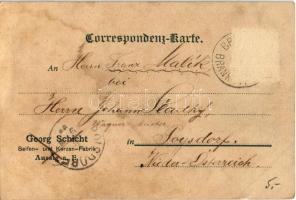 Correspondenz-Karte.
An Herrn Franz Malik
bei
Herrn Johann
Georg Schicht
Seifen- und Kerzen-Fabrik
Aussig a. E.
in Loosdorf
Nieder-Österreich.
5,-